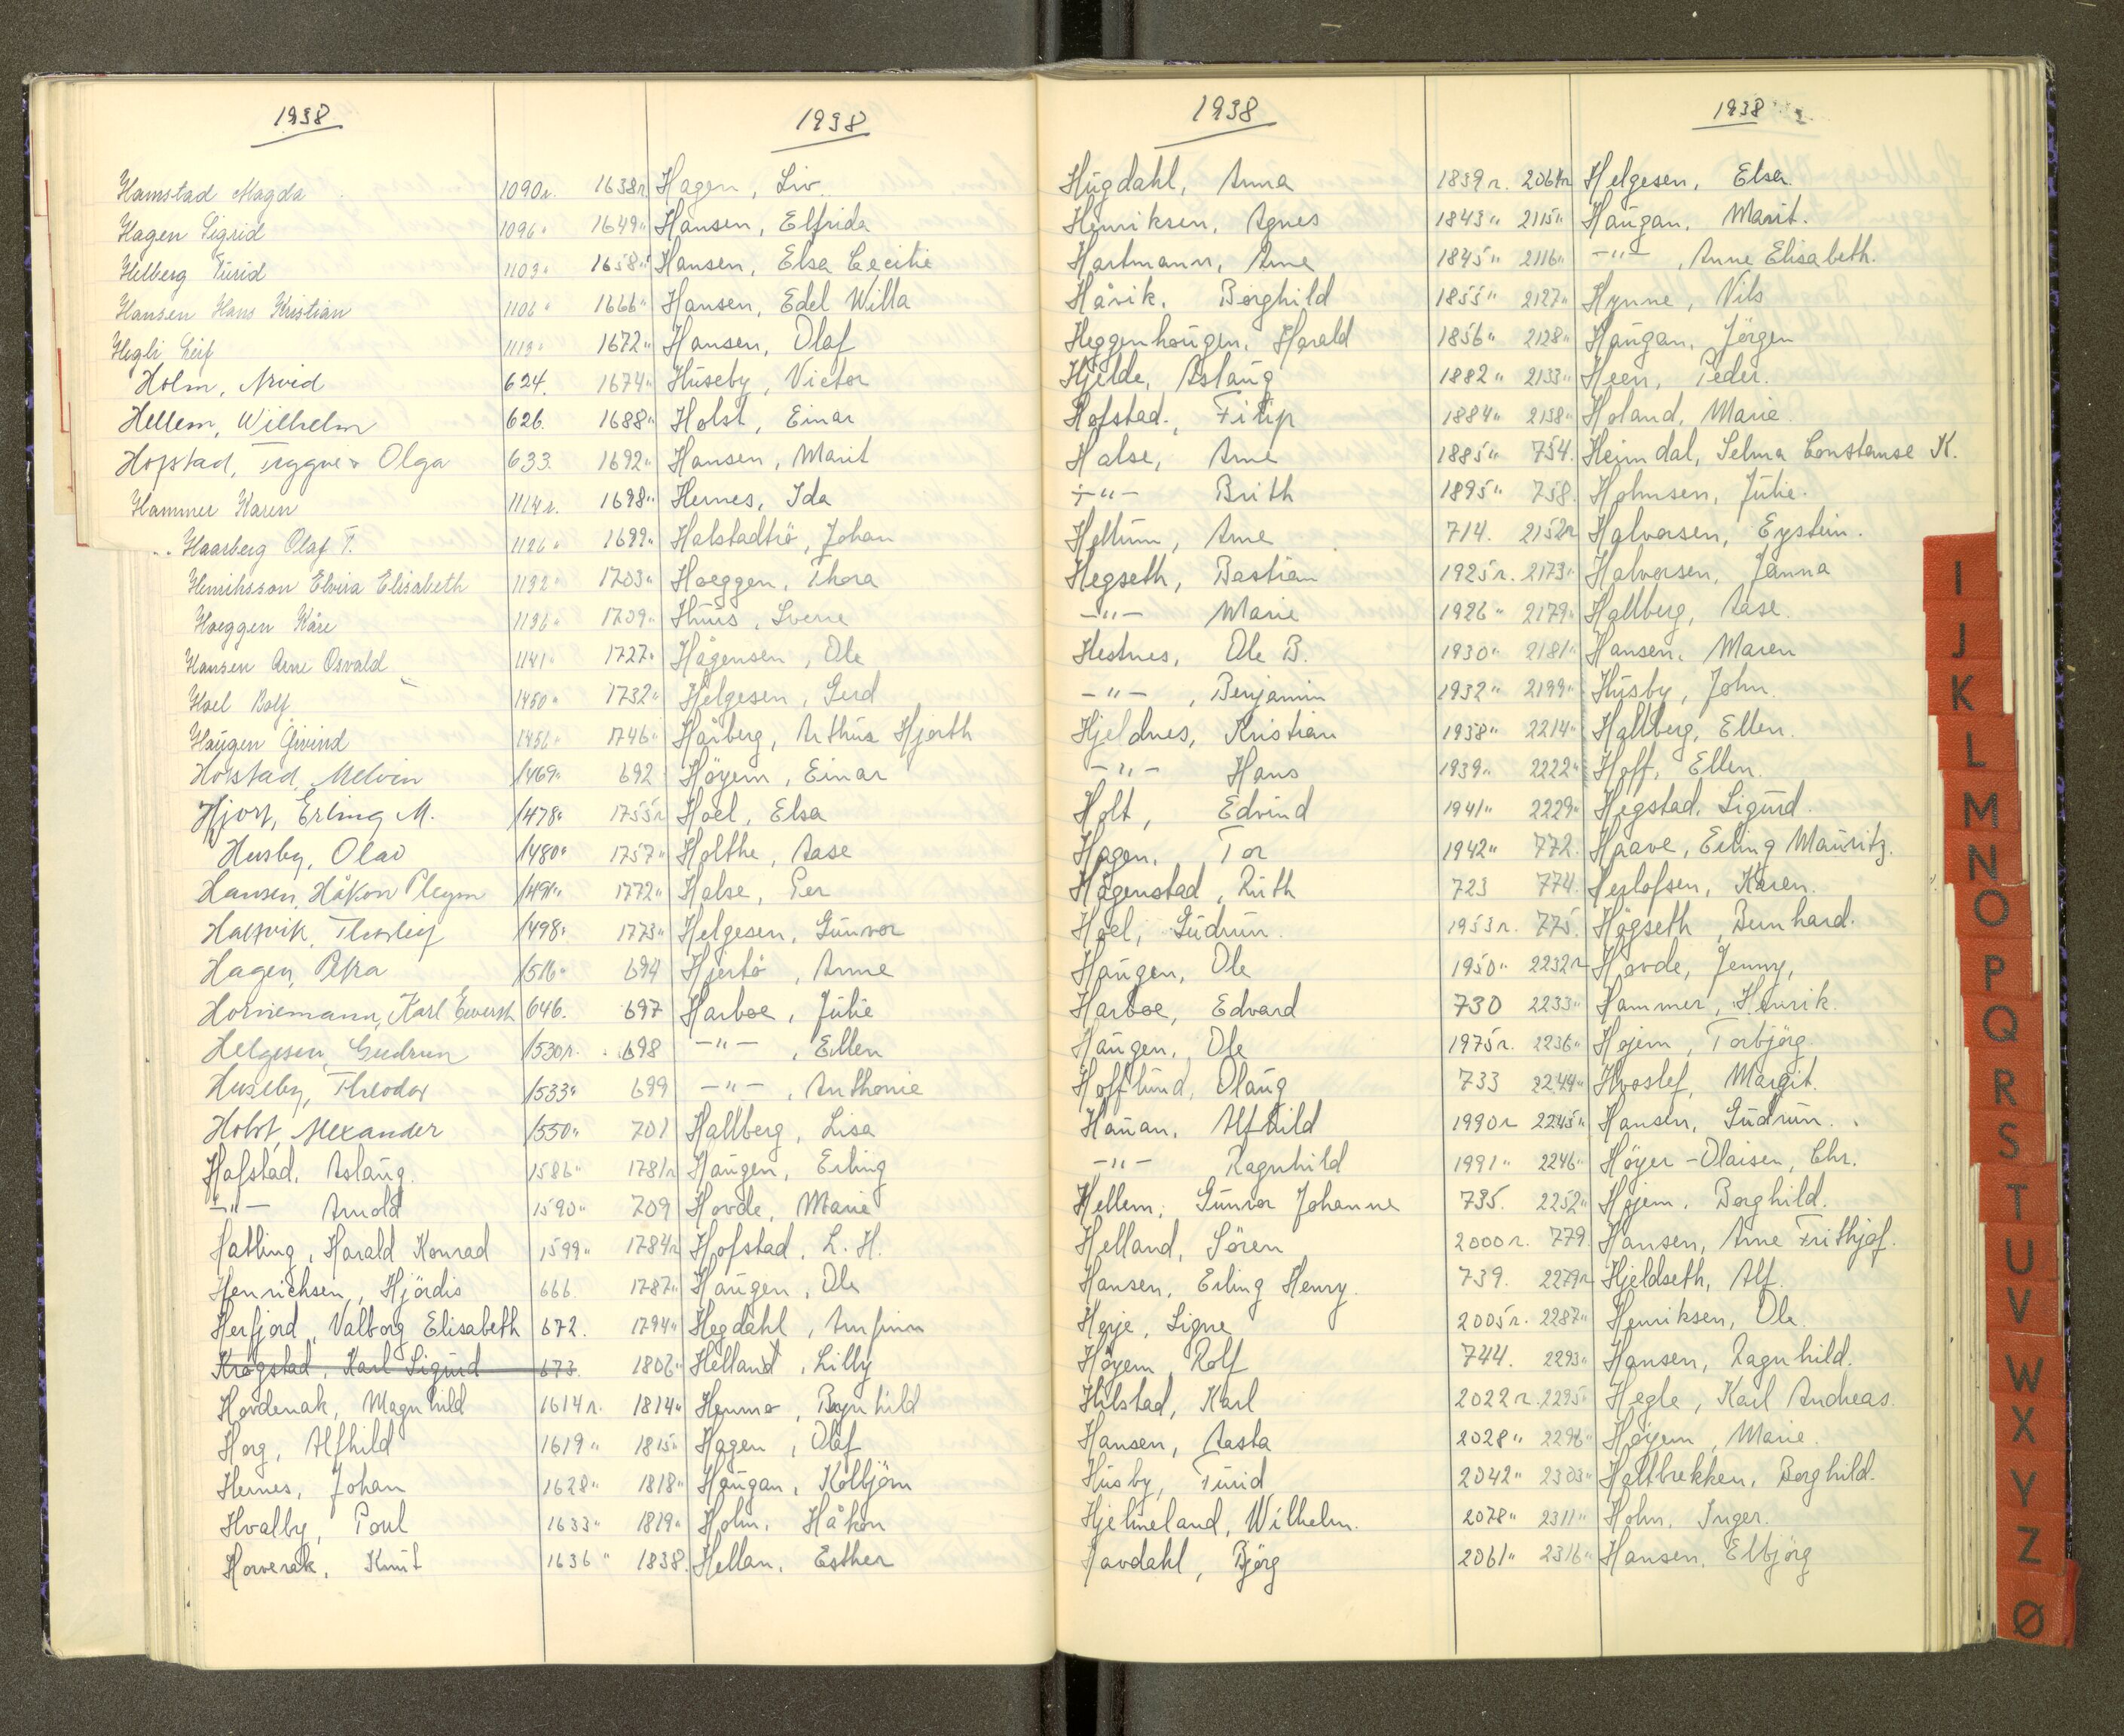 1938
Hamstad Magda 1090r.
Hagen Sigrid 1096"
Helberg Turid 1103"
Hansen Hans Kristian 1106"
Hegli Leif 1113"
Holm, Arvid 624.
Hellem, Wilhelm 626.
Hofstad, Tryggve & Olga 633.
Hammer Karen 1114r.
Haarberg Olaf T. 1126"
Henriksson Elvira Elisabeth 1132"
Hoeggen Kåre 1136"
Hansen Arne Osvald 1141"
Hoel Rolf 1450"
Haugen Eivind 1456"
Hofstad, Melvin 1469"
Hjort, Erling M. 1478"
Husby, Olav 1480"
Hansen, Håkon Pleym 1491"
Halsvik, Thorleif 1498"
Hagen, Petra 1516"
Horniemann, Karl Ewersh 646.
Helgesen, Gudrun 1530r.
Huseby, Theodor 1533"
Holst, Alexander 1550"
Hofstad, Aslaug 1586"
-"- Arnold 1590"
Hatling, Harald Konrad 1599"
Henrichsen, Hjördis 666.
Herfjord, Valborg Elisabeth 672.
Krogstad, Karl Sigurd 673.
Hovdenak, Magnhild 1614r.
Horg, Alfhild 1619"
Hernes, Johan 1628"
Hvalby, Poul 1633"
Horverak, Knut 1636"
1938
1638r Hagen, Liv.
1649" Hansen, Elfrida
1658" Hansen, Elsa Cecilie
1666" Hansen, Edel Willa
1672" Hansen, Olaf
1674" Huseby, Victor
1688" Holst, Einar
1692" Hansen, Marit
1698" Hernes, Ida
1699" Halstadtrö, Johan
1703" Hoeggen, Thora
1709" Huus, Sverre
1727" Hågensen, Ole
1732" Helgesen, Gerd
1746" Hårberg, Arthur Hjorth
692 Höyem, Einar
1755r Hoel, Elsa
1757" Holthe, Aase
1772" Halse, Per
1773" Helgesen, Gunvor
694 Hjertö, Anne
697 Harboe, Julie
698 -"-, Ellen
699 -"-, Anthonie
701 Hallberg, Lisa
1781r Haugen, Erling
709 Hovde, Marie
1784r Hofstad, L. H.
1787" Haugen, Ole
1794" Hegdahl, Arnfinn
1806" Helland, Lilly
1814" Hemmo, Ragnhild
1815" Hagen, Olaf
1818" Haugan, Kolbjörn
1819" Holm, Håkon
1838. Hellan, Esther
1938
Hugdahl, Anna 1839r.
Henriksen, Agnes 1843"
Hartmann, Arne 1845"
Håvik, Borghild 1855"
Heggenhougen, Harald 1856"
Hjelde, Aslaug 1882"
Hofstad, Filip 1884"
Halse, Arne 1885"
-"- Brith 1895"
Heltum, Arne 714.
Hegseth, Bastian 1925r.
-"- Marie 1926"
Hestnes, Ole B. 1930"
-"-, Benjamin 1932"
Hjeldnes, Kristian 1938"
-"- Hans 1939"
Holt, Edvind 1941"
Hagen, Tor 1942"
Hågenstad, Ruth 723
Hoel, Gudrun 1953r.
Haugen, Ole 1950"
Harboe, Edvard 730
Haugen, Ole 1975r.
Hofflund, Olaug 733
Hauan, Alfhild 1990r
-"- Ragnhild 1991"
Hellem, Gunvor Johanne 735.
Helland, Sören 2000r.
Hansen, Erling Henry 739.
Herje, Signe 2005r.
Höyem, Rolf 744.
Hilstad, Karl 2022r.
Hansen, Aasta 2028"
Husby, Turid 2042"
Hjelmeland, Wilhelm. 2078"
Havdahl, Björg 2061"
1938
2064r Helgesen, Elsa.
2115" Haugan, Marit.
2116" -"-, Anne Elisabeth.
2127" Hynne, Nils
2128" Haugan, Jörgen
2133" Heen, Peder.
2138" Holand, Marie.
754. Heimdal, Selma Constanse K.
758. Holmsen, Julie.
2152r Halvorsen, Eystein.
2173" Halvorsen, Janna
2179" Hallberg, Aase.
2181" Hansen, Maren
2199" Husby, John.
2214" Hallberg, Ellen.
2222" Hoff, Ellen.
2229" Hegstad, Sigurd.
772. Haave, Erling Mauritz.
774. Herlofsen, Karen.
775. Högseth, Bernhard.
2232r Hovde, Jenny,
2233" Hammer, Henrik.
2236" Hojem, Torbjörg
2244" Hvoslef, Margit.
2245" Hansen, Gudrun.
2246" Höyer-Olaisen, Chr.
2252" Hojem, Borghild.
779 Hansen, Arne Frithjof.
2279r Hjeldseth, Alf.
2287" Henriksen, Ole.
2293" Hansen, Ragnhild.
2295" Hegle, Karl Andreas.
2296" Höyem, Marie.
2303" Haltbrekken, Borghild.
2311" Holm, Inger.
2316" Hansen, Elbjörg
I
J
K
L
M
N
O
P
Q
R
S
T
U
V
W
X
Y
Z
Ø